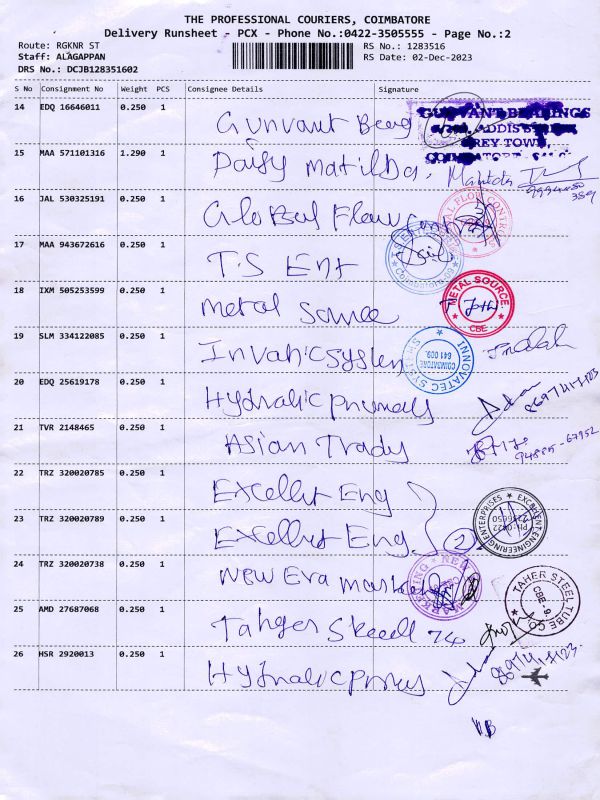 THE PROFESSIONAL COURIERS, COIMBATORE
Delivery Runsheet - PCX - Phone No.:0422-3505555 - Page No.:2
Route: RGKNR ST
RS No.: 1283516
Staff: ALAGAPPAN
RS Date: 02-Dec-2023
DRS No.: DCJB128351602
S No Consignment No Weight PCS Consignee Details Signature
14 EDQ 16646011 0.250 1 Gunvant Bearg
GUNVANT BEARINGS
ADDIS STREET
GREY TOWN,
15 MAA 571101316 1.290 1 Daisy Matilda.
16 JAL 530325191 0.250 1 Global Flow Control
FLOW CONTROL
17 MAA 943672616 0.250 1 T.S Ent
Coimbatore-09
18 IXM 505253599 0.250 1 Metal Source
METAL SOURCE
CBE
19 SLM 334122085 0.250 1 Invatic System
INNOVATEC SYSTEMS
COIMBATORE
641 009.
20 EDQ 25619178 0.250 1 Hydralic pnumaly
8697414123
21 TVR 2148465 0.250 1 Asian Trady
94885-67952
22 TRZ 320020785 0.250 1 Excellet Eng
23 TRZ 320020789 0.250 1 Excellet Eng
2
EXCELLENT ENGINEERING ENTERPRISES
24 TRZ 320020738 0.250 1 New Era Market
NEW
MARKETING
25 AMD 27687068 0.250 1 Tahger Steell 74
TAHER STEEL TUBE CO
CBE-9.
26 HSR 2920013 0.250 1 Hydralic pnumy